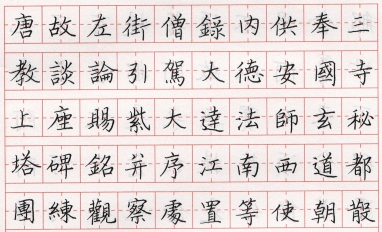 唐故左街僧錄內供奉三
教談論引駕大德安國寺
上座賜紫大達法師玄秘
塔碑銘并序江南西道都
團練觀察處置等使朝散